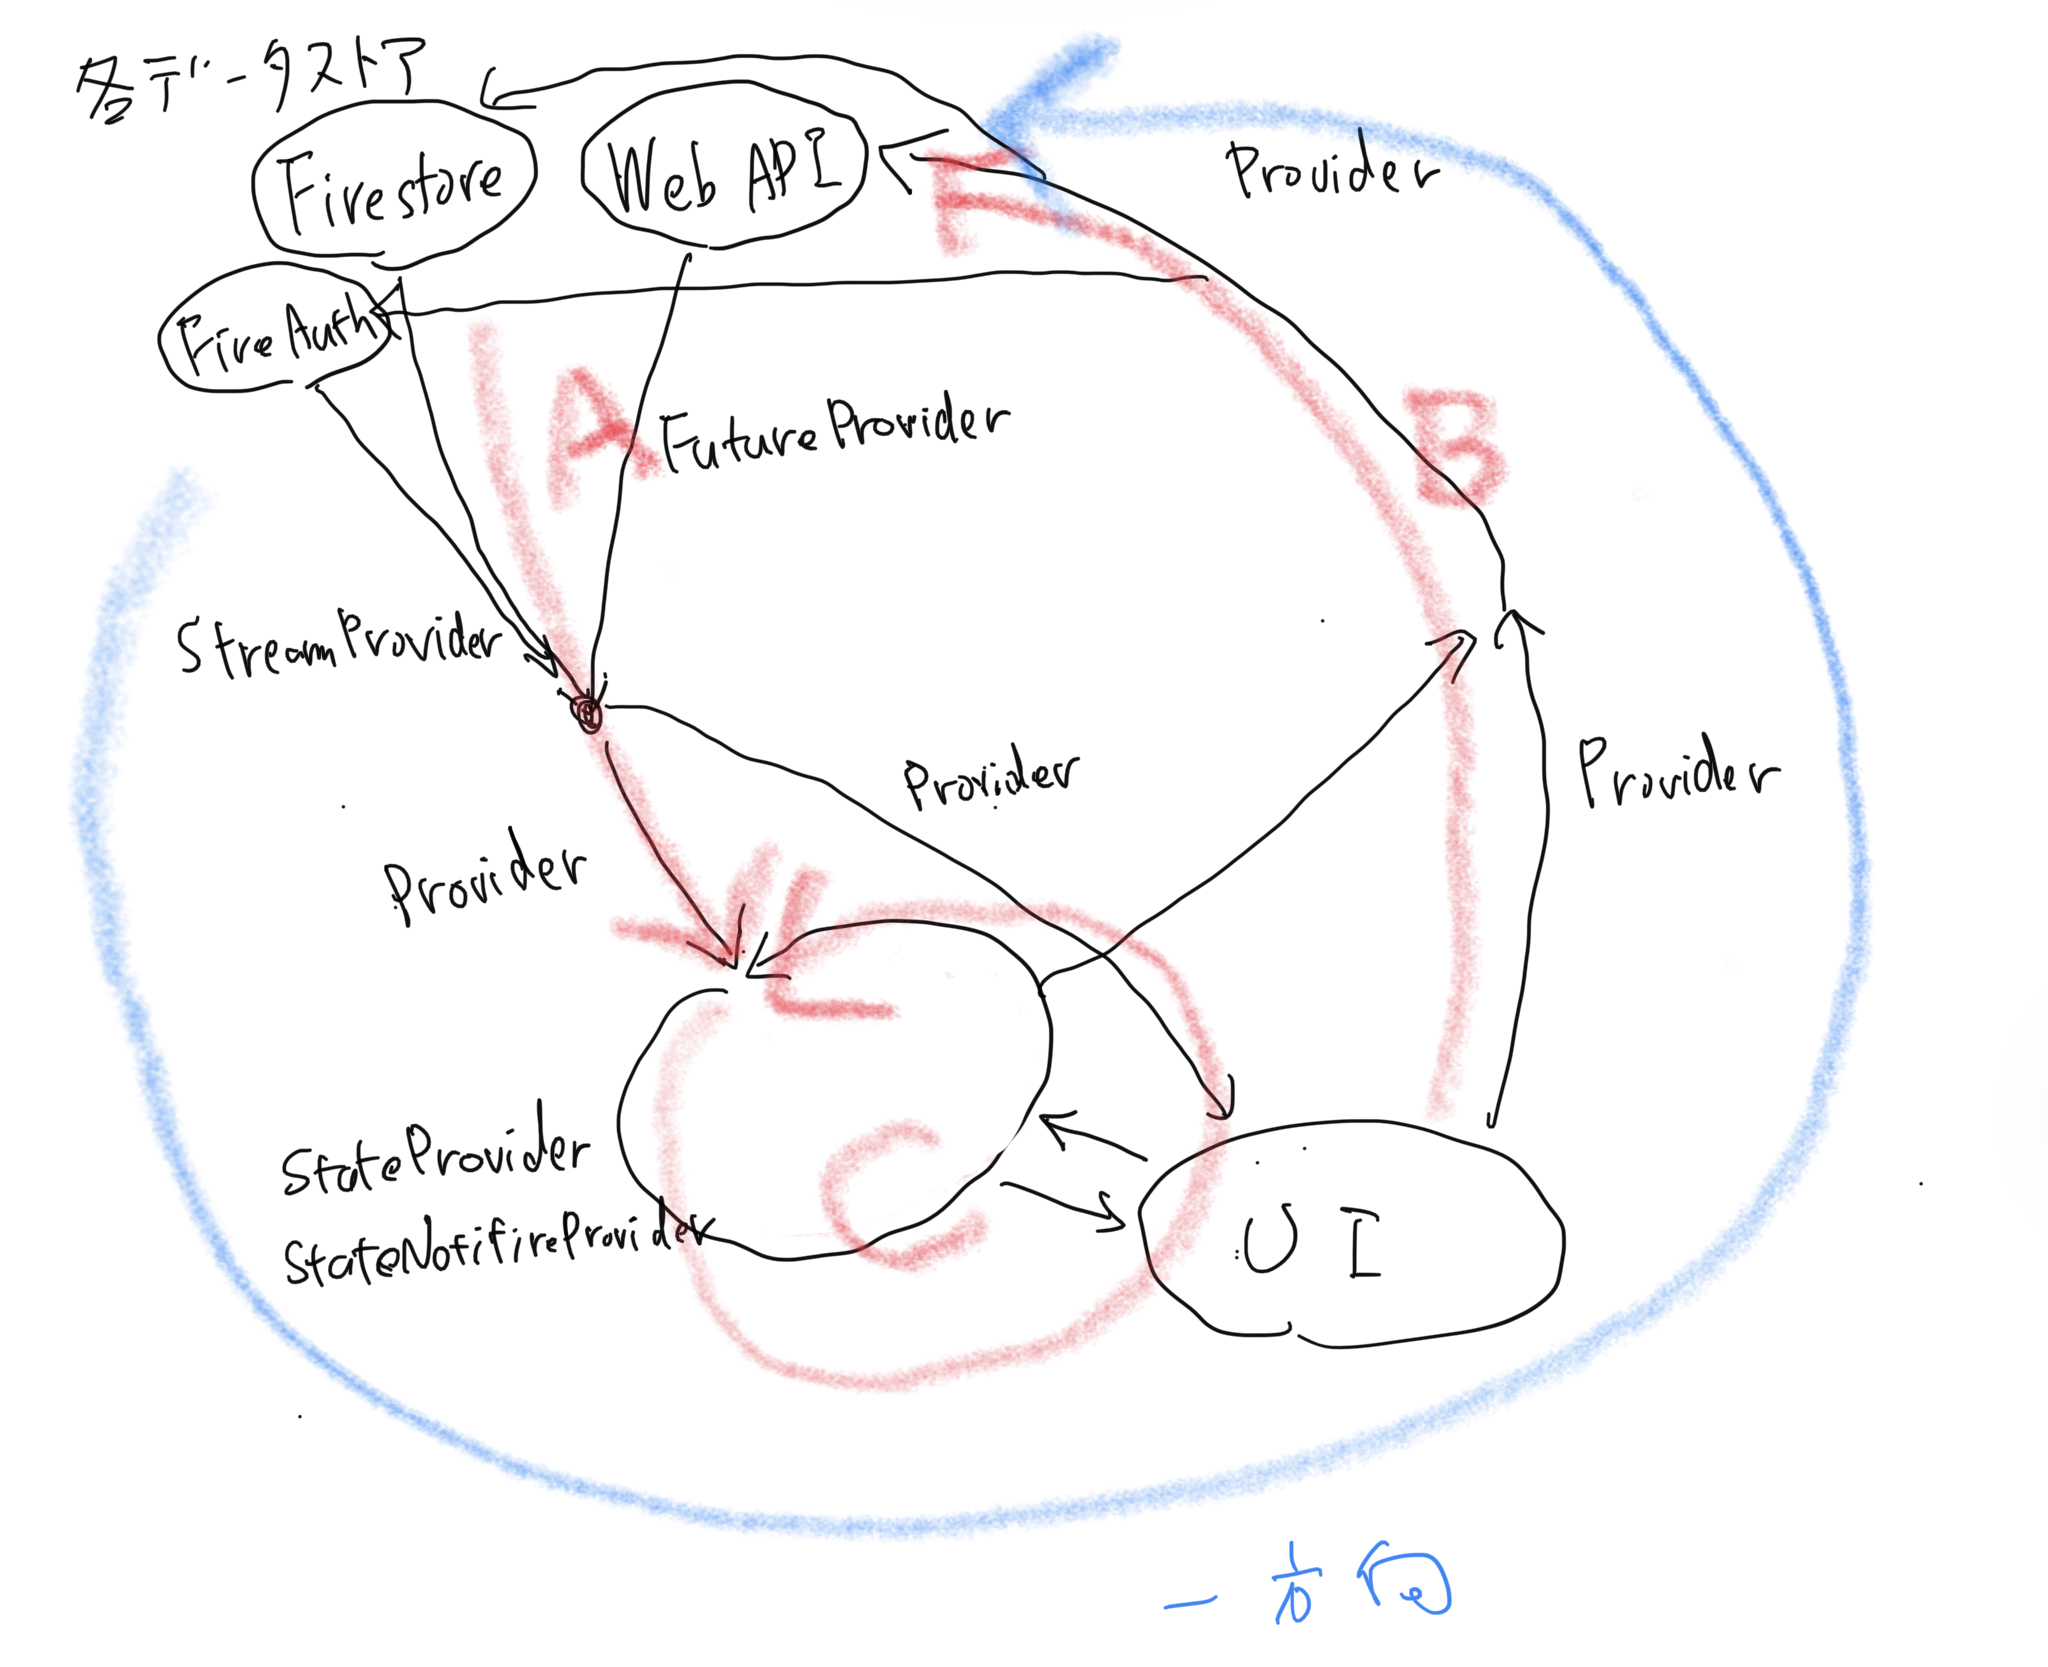 各データストア
Firestore
Web API
Provider
FireAuth
A
FutureProvider
B
StreamProvider
Provider
Provider
Provider
StateProvider
StateNotifireProvider
C
UI
一方向